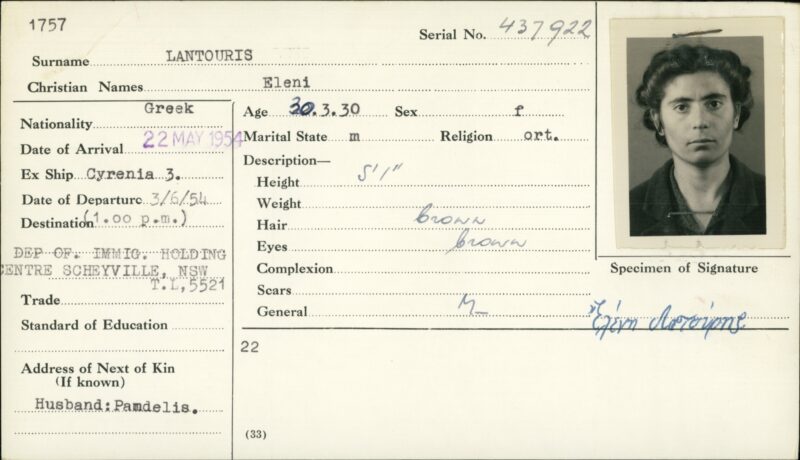 1757
Serial No. 437922
Surname LANTOURIS
Christian Names Eleni
Nationality Greek
Date of Arrival 22 MAY 1954
Ex Ship Cyrenia 3.
Date of Departure 3/6/54
Destination (1.00 p.m.)
DEP OF. IMMIG. HOLDING
CENTRE SCHEYVILLE, NSW
T.L,5521
Trade
Standard of Education
Address of Next of Kin
(If known)
Husband:Pamdelis.
Age 30.3.30 Sex f
Marital State m Religion ort.
Description—
Height 5'1"
Weight
Hair brown
Eyes brown
Complexion
Scars
General
22
(33)
Specimen of Signature
Ἑλένη